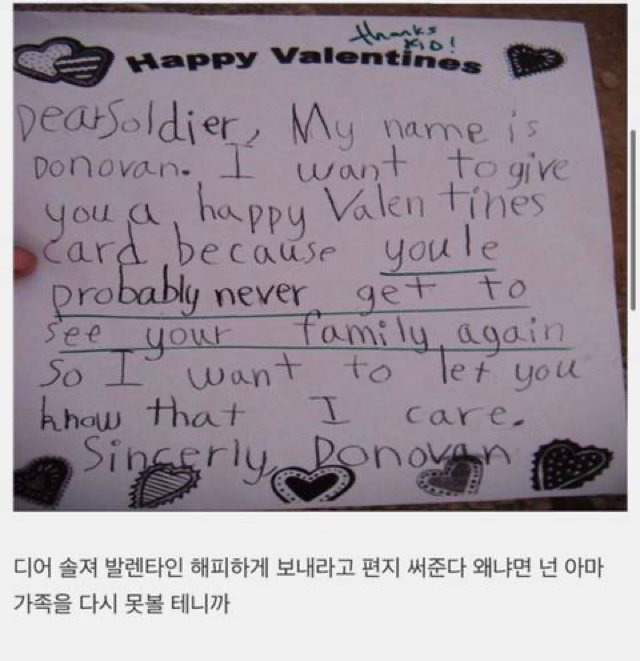 thanks
KID!
Happy Valentines
Dear Soldier, My name is
Donovan. I want to give
you a happy Valentines
card because youle
probably never get to
see your family again
So I want to let you
know that I care.
Sincerly Donovan
디어 솔져 발렌타인 해피하게 보내라고 편지 써준다 왜냐면 넌 아마
가족을 다시 못볼 테니까